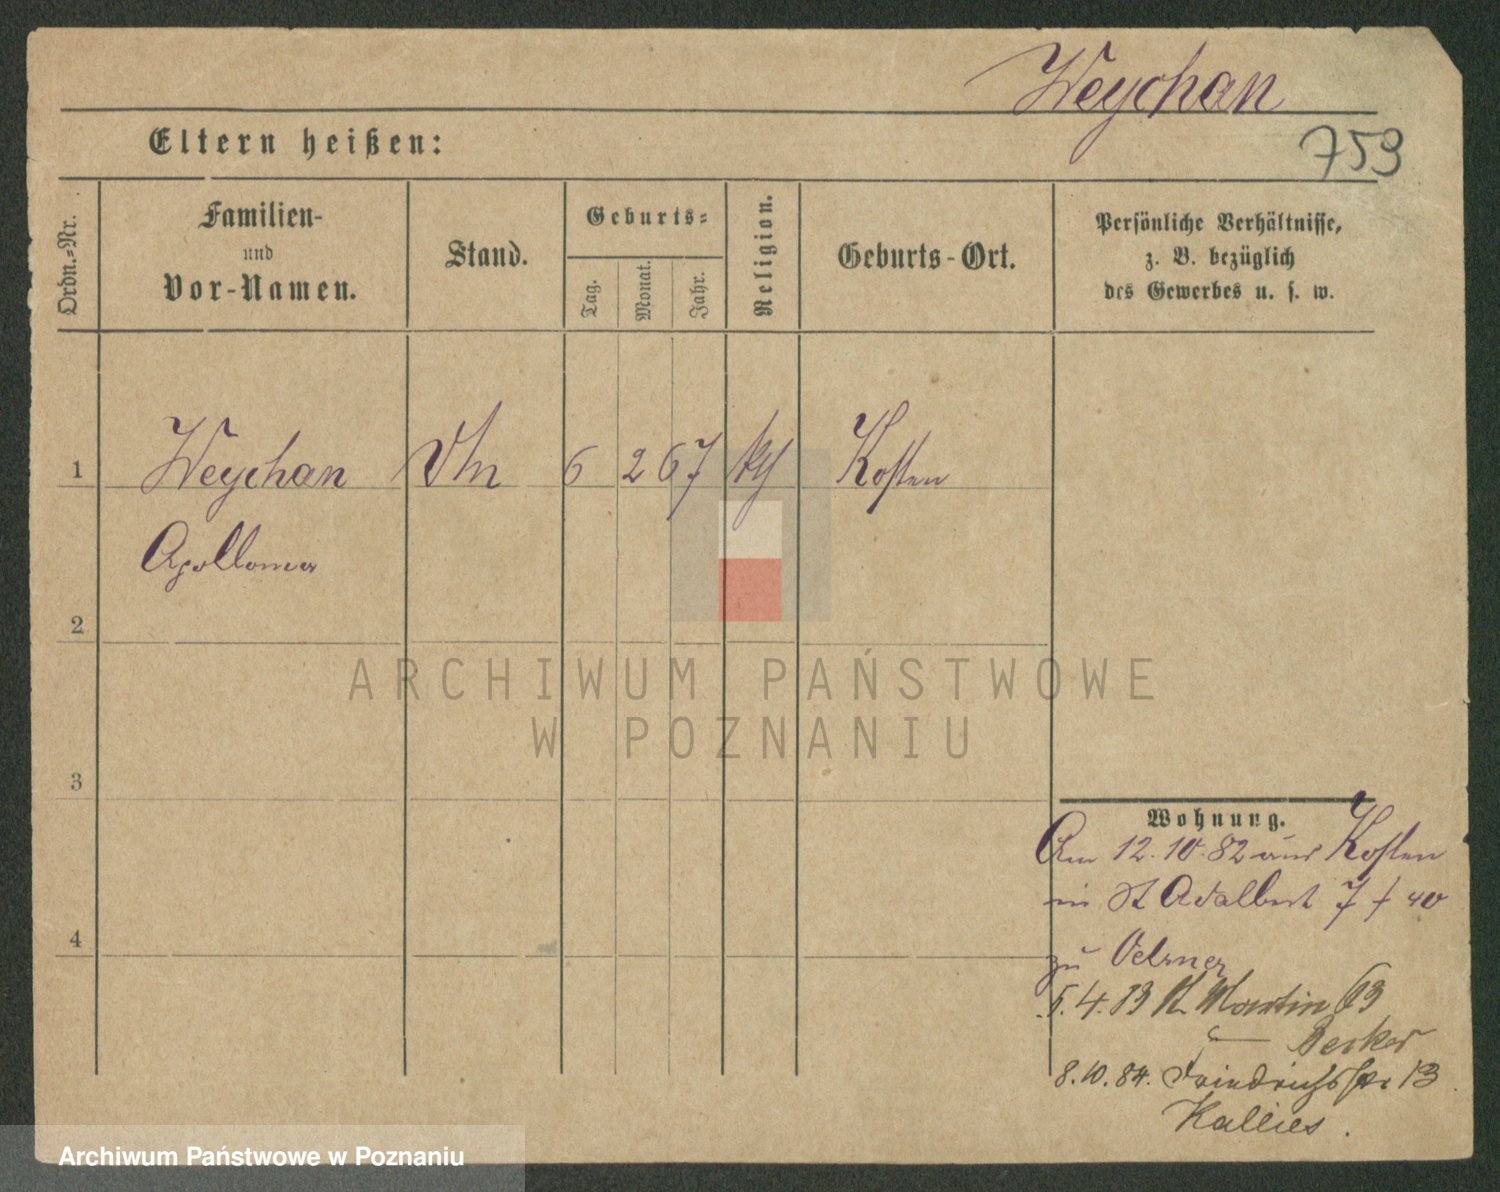 Weychan
759
Eltern heißen:
Ordn.-Nr.
Familien-
und
Vor-Namen.
Stand.
Geburts-
Tag.
Monat.
Jahr.
Religion.
Geburts-Ort.
Persönliche Verhältnisse,
z. B. bezüglich
des Gewerbes u. s. w.
1 Weychan 6 2 67 Kosten
Apollonia
2
3
4
Wohnung.
Am 12.10.82 aus Kosten
in St Adalbert 7 / 40
zu Oelsner
5.4.83 St. Martin 63
Becker
8.10.84. Friedrichsstr. 13
Kallies.
ARCHIWUM PAŃSTWOWE
W POZNANIU
Archiwum Państwowe w Poznaniu